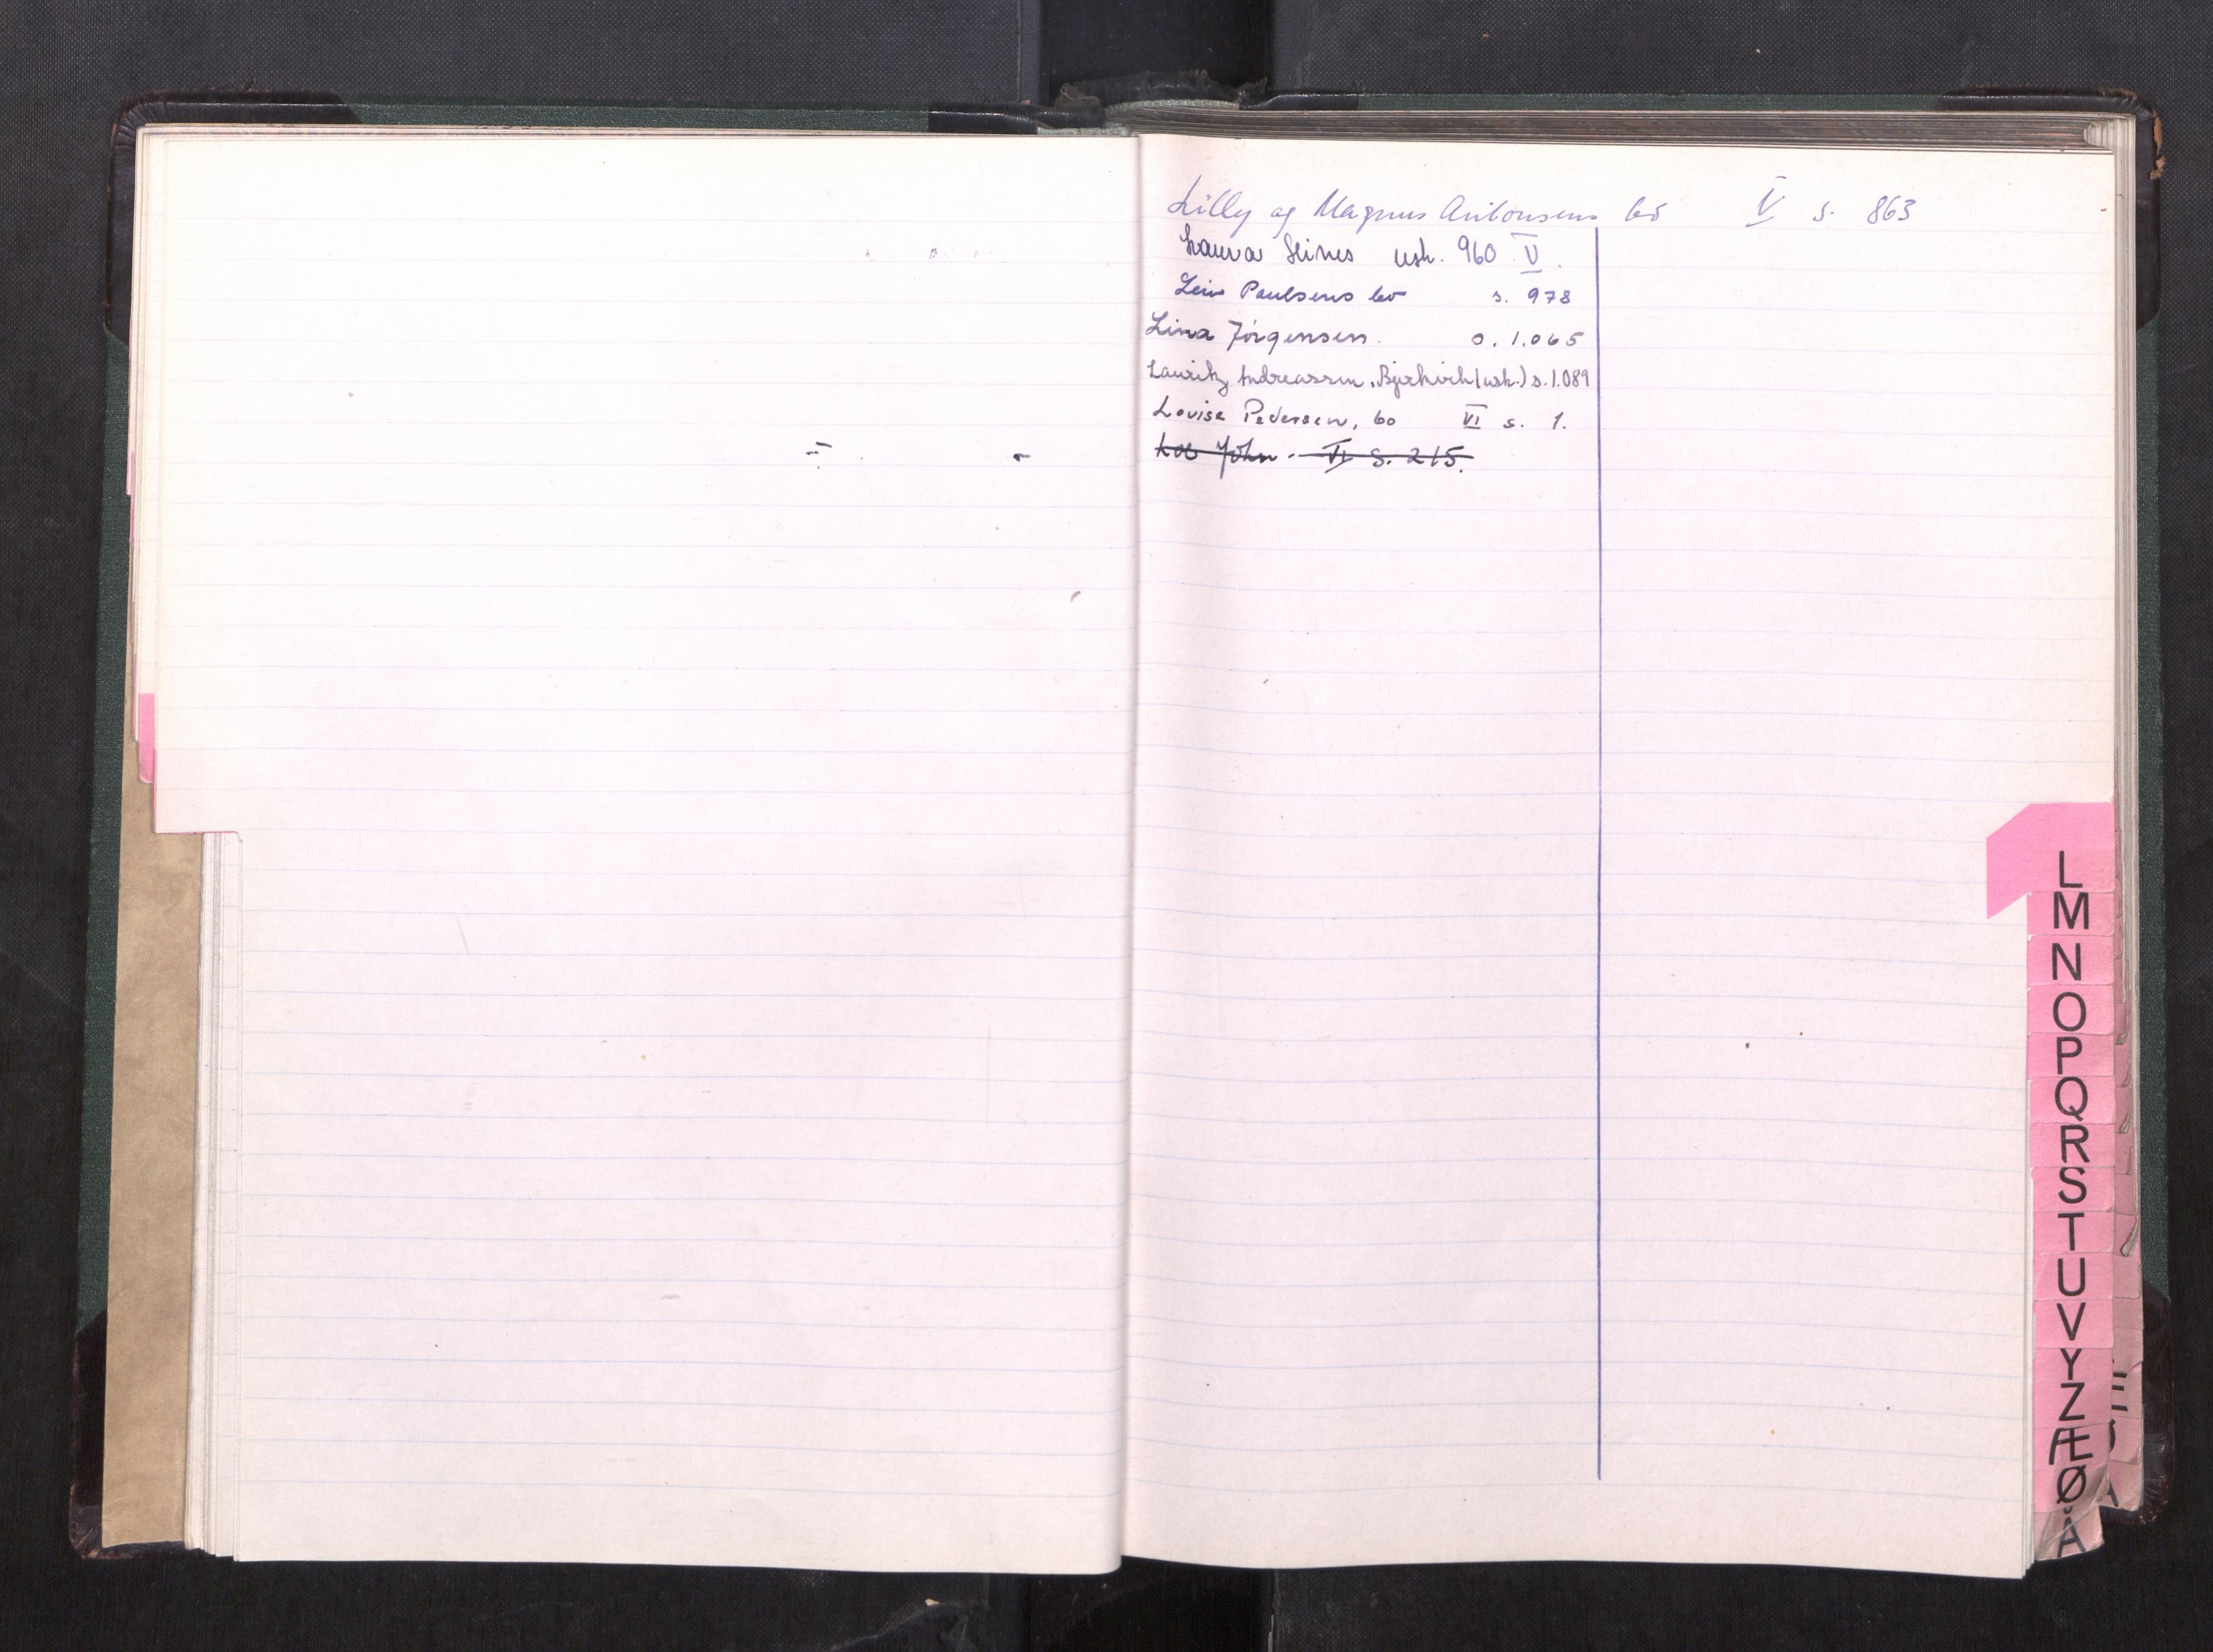 Lilly og Magnus Antonsens bo V s. 863
Laura Heines usk. 960 V.
Leiv Paulsens bo s. 978
Lina Jørgensen. s. 1.065
Lauritz Andreassen, (usk.) s. 1.089
Lovise Pedersen, bo VI s. 1.
John VI S. 215.
L
M
N
O
P
Q
R
S
T
U
V
Y
Z
Æ
Ø
Å